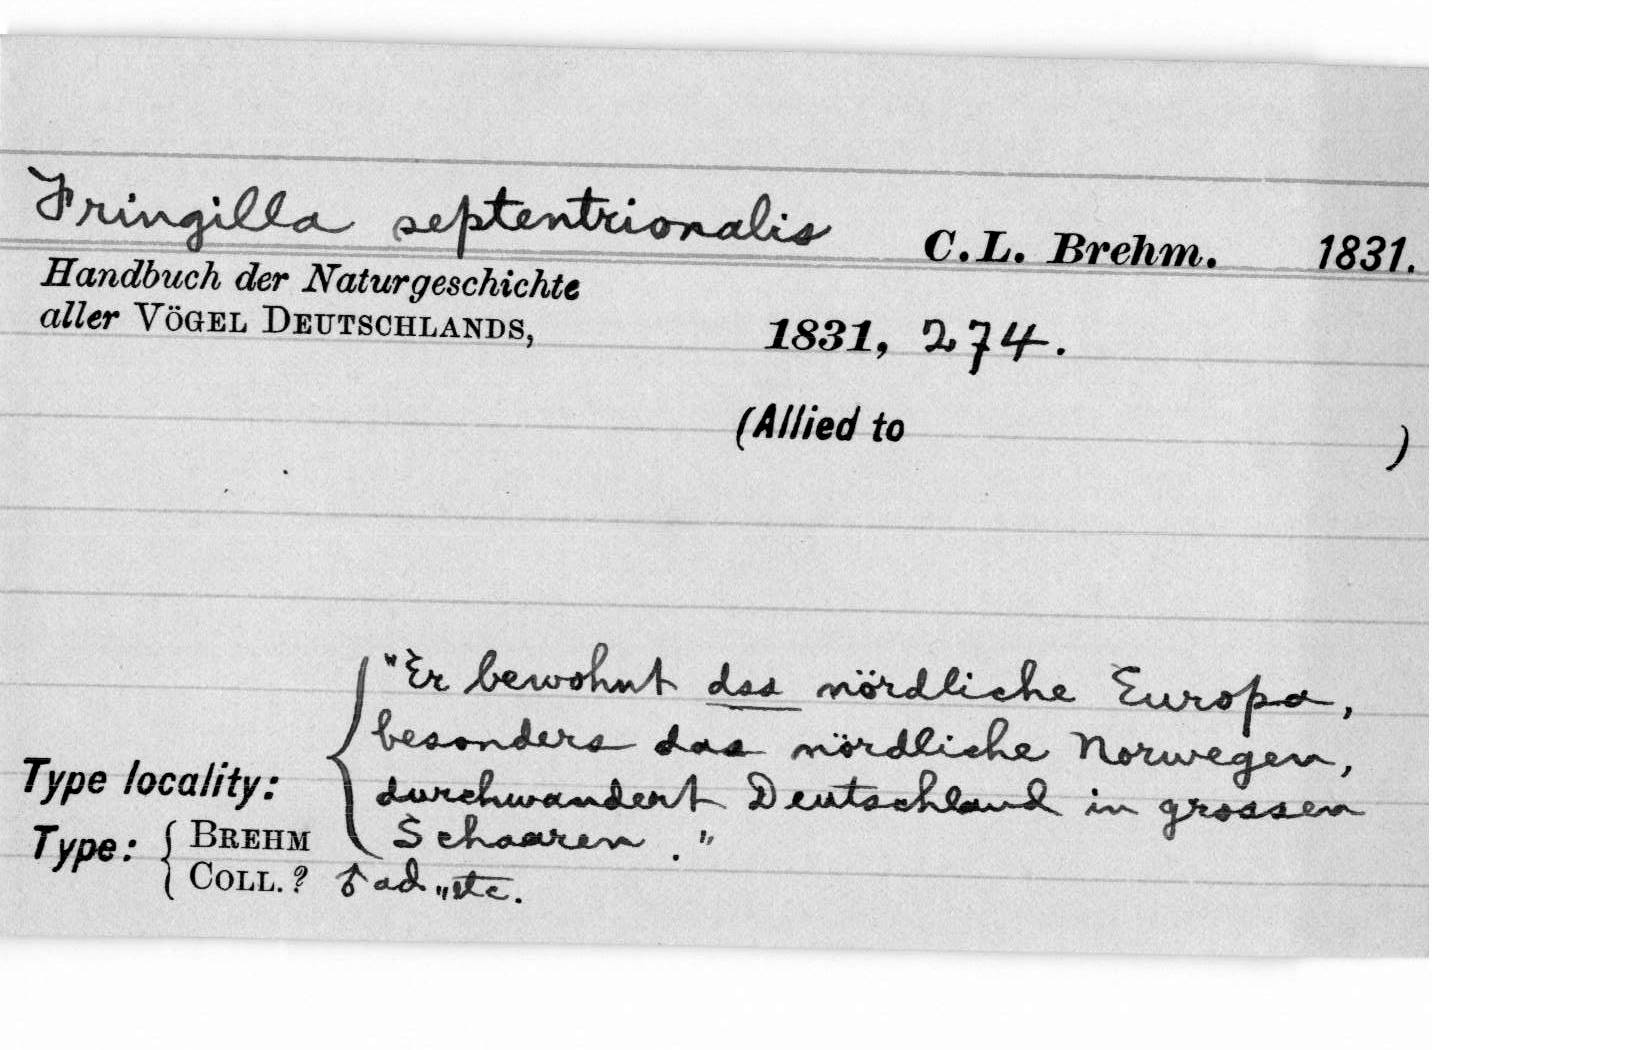 Fringilla septentrionalis C.L. Brehm. 1831.
Handbuch der Naturgeschichte
aller VÖGEL DEUTSCHLANDS, 1831, 274.
(Allied to )
"Er bewohnt das nördliche Europa,
besonders das nördliche Norwegen,
Type locality: durchwandert Deutschland in grossen
Schaaren."
Type: { BREHM
COLL.? ♂ ad., etc.